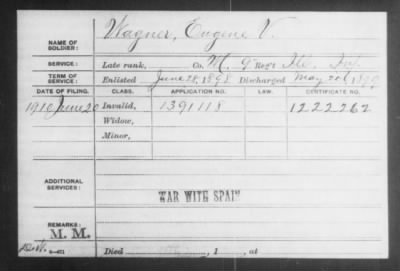 NAME OF SOLDIER: Wagner, Eugene V.
SERVICE: Late rank, Co. M, 9 Reg't Ill. Inf.
TERM OF SERVICE: Enlisted June 28, 1898 Discharged May 20, 1899
DATE OF FILING. CLASS. APPLICATION NO. LAW. CERTIFICATE NO.
1910 June 20 Invalid, 1391118 1222262
Widow,
Minor,
ADDITIONAL SERVICES:
WAR WITH SPAIN
REMARKS:
M. M.
Died , 1 , at